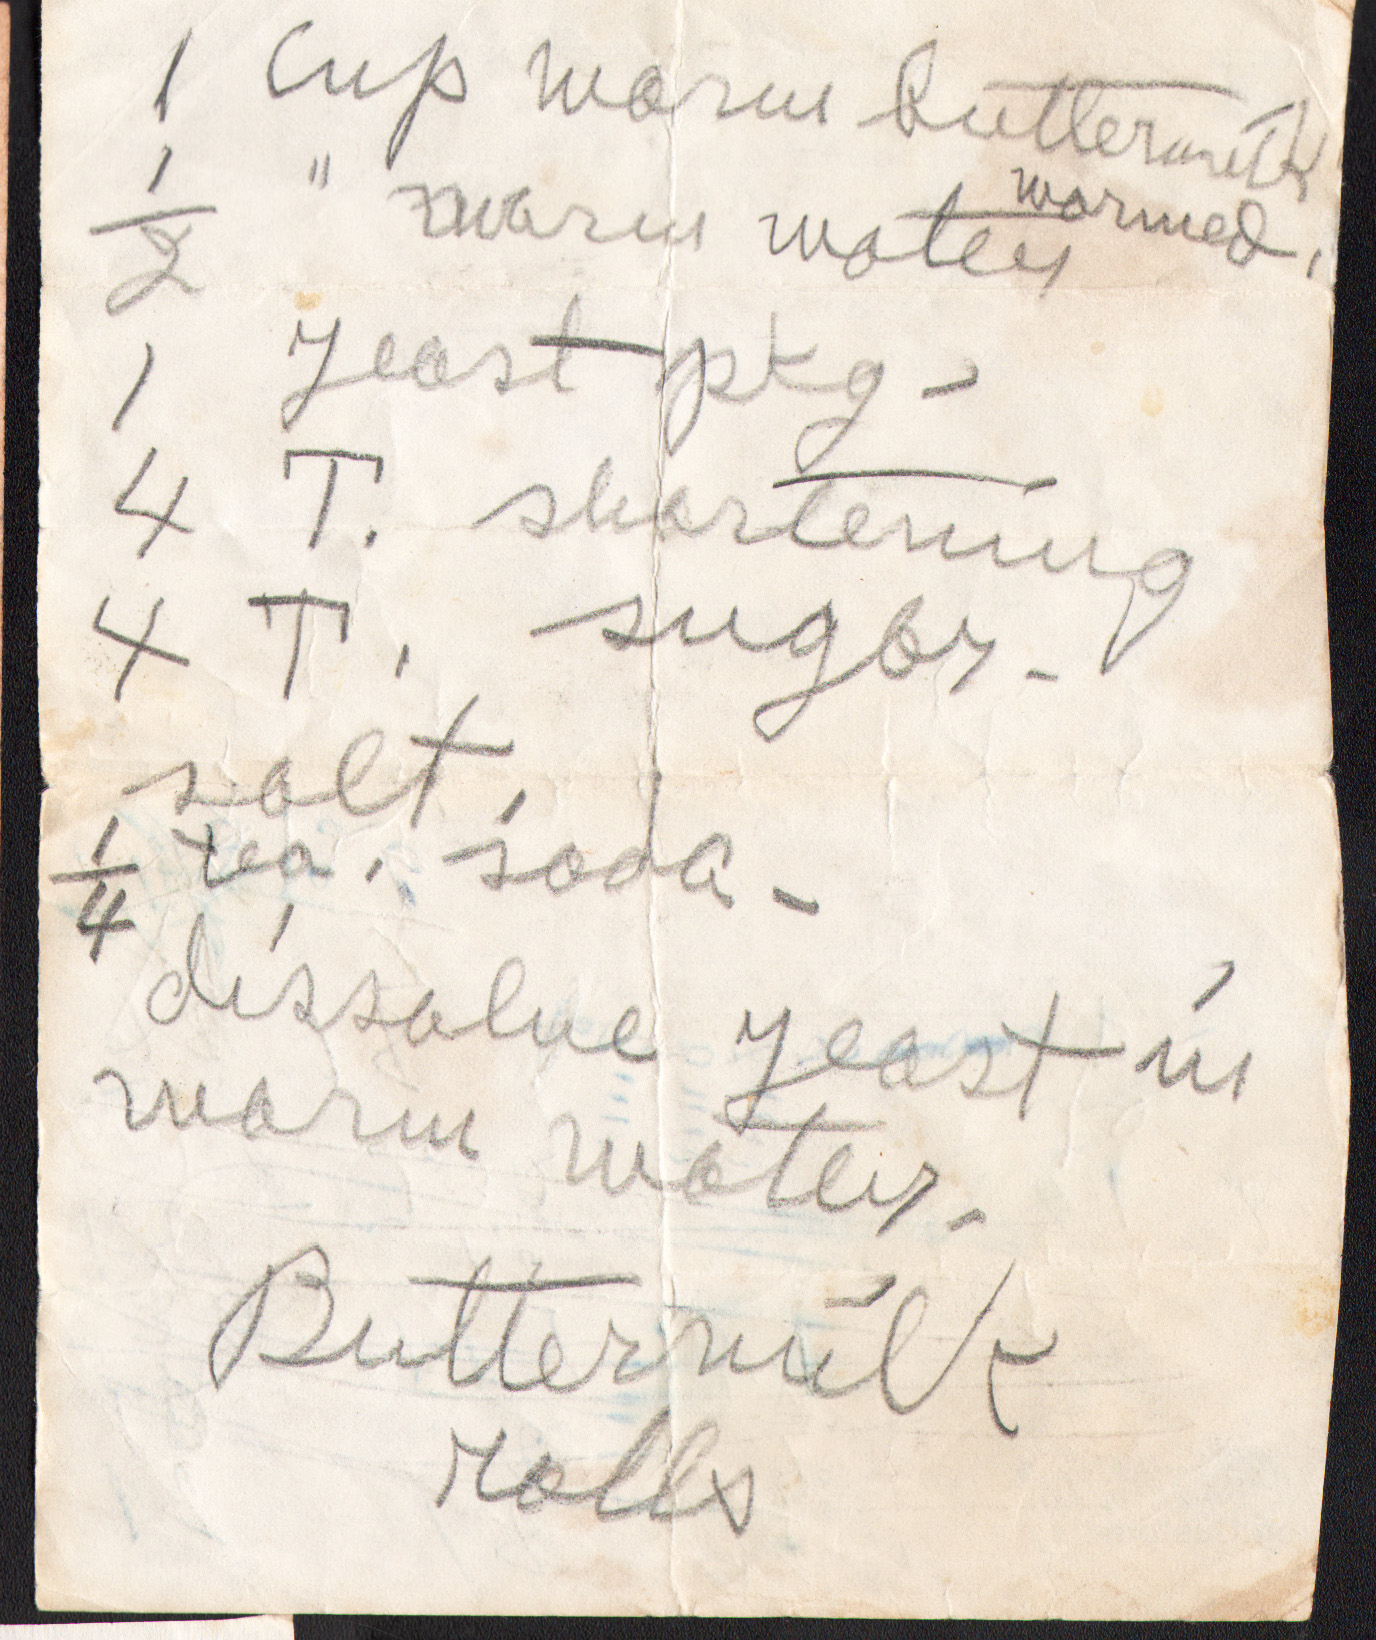 1 Cup warm buttermilk
warmed.
1/2 " warm water
1 yeast pkg -
4 T. shortening
4 T. sugar -
salt,
1/4 tea. soda -
dissolve yeast in
warm water -
Buttermilk
rolls